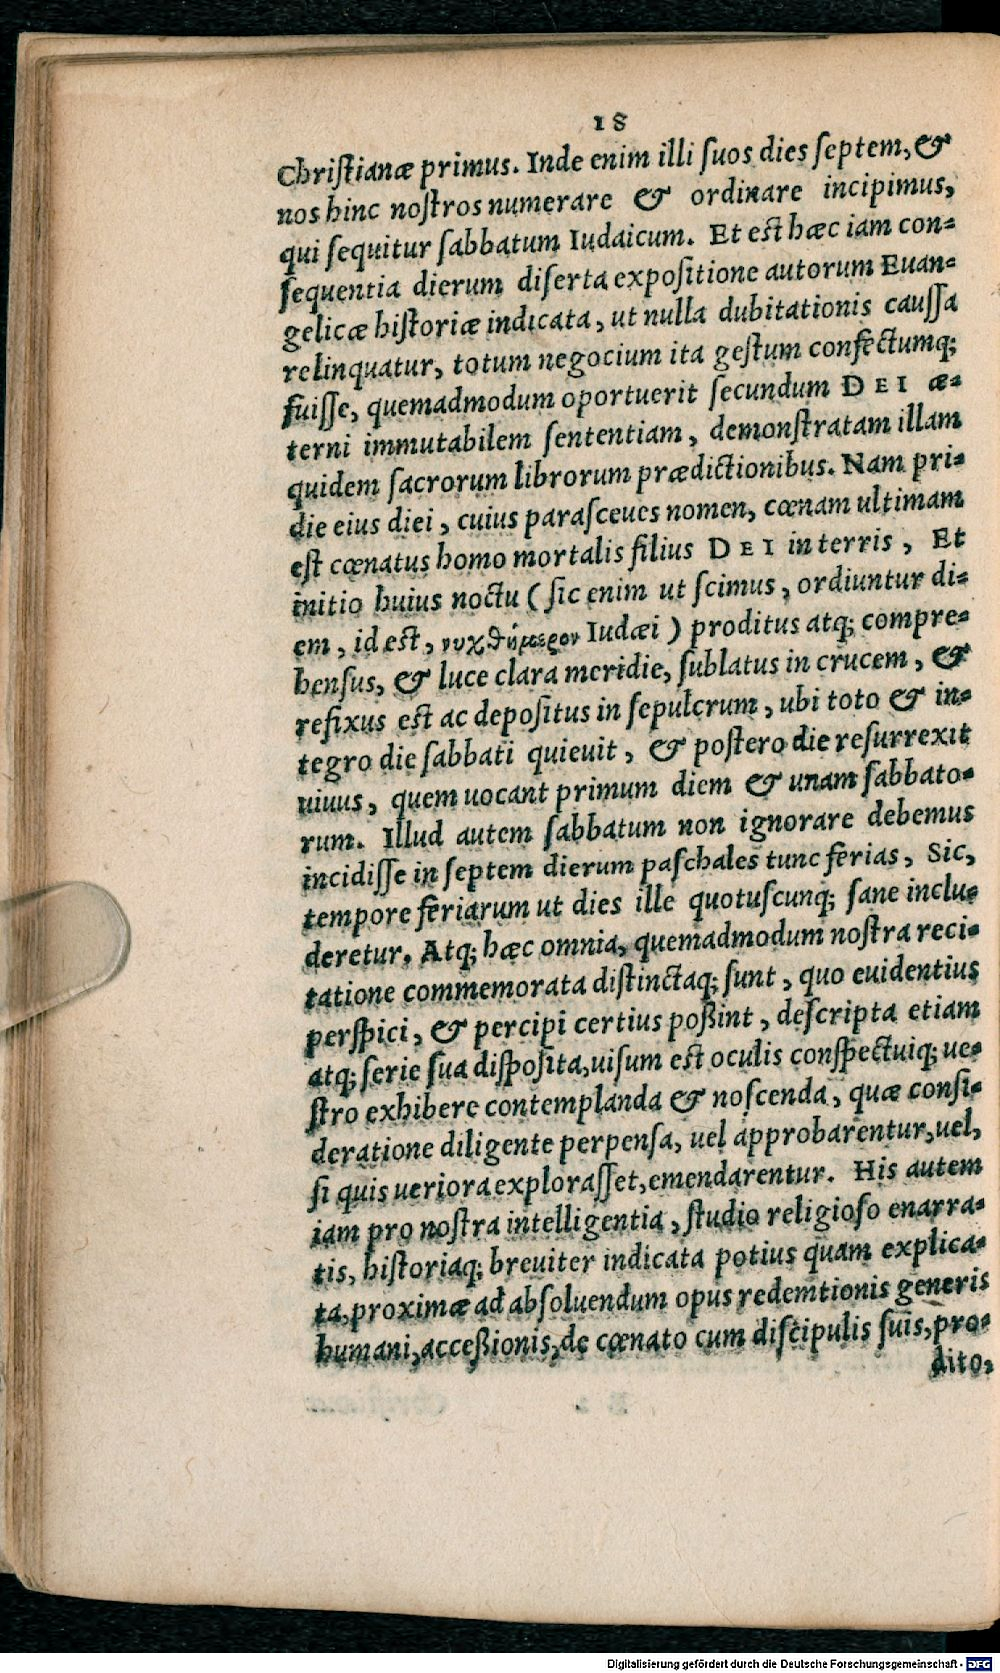 18
Chriſtianæ primus. Inde enim illi ſuos dies ſeptem, &
nos hinc noſtros numerare & ordinare incipimus,
qui ſequitur ſabbatum Iudaicum. Et eſt hæc iam con-
ſequentia dierum diſerta expoſitione autorum Euan-
gelicæ hiſtoriæ indicata, ut nulla dubitationis cauſſa
relinquatur, totum negocium ita geſtum confectumq;
fuiſſe, quemadmodum oportuerit ſecundum DEI æ-
terni immutabilem ſententiam, demonſtratam illam
quidem ſacrorum librorum prædictionibus. Nam pri-
die eius diei, cuius paraſceues nomen, cœnam ultimam
eſt cœnatus homo mortalis filius DEI in terris, Et
initio huius noctu (ſic enim ut ſcimus, ordiuntur di-
em, id eſt, νυχθήμερον Iudæi) proditus atq; compre-
henſus, & luce clara meridie, ſublatus in crucem, &
refixus est ac depoſitus in ſepulcrum, ubi toto & in-
tegro die ſabbati quieuit, & poſtero die reſurrexit
uiuus, quem uocant primum diem & unam ſabbato-
rum. Illud autem ſabbatum non ignorare debemus
incidiſſe in ſeptem dierum paſchales tunc ferias, Sic,
tempore feriarum ut dies ille quotuſcunq; ſane inclu-
deretur. Atq; hæc omnia, quemadmodum noſtra reci-
tatione commemorata diſtinctaq; ſunt, quo euidentius
perſpici, & percipi certius poßint, deſcripta etiam
atq; ſerie ſua diſpoſita, uiſum eſt oculis conſpectuiq; ue-
ſtro exhibere contemplanda & noſcenda, quæ conſi-
deratione diligente perpenſa, uel approbarentur, uel,
ſi quis ueriora exploraſſet, emendarentur. His autem
iam pro noſtra intelligentia, ſtudio religioſo enarra-
tis, hiſtoriaq; breuiter indicata potius quam explica-
ta, proximæ ad abſoluendum opus redemtionis generis
humani, acceßionis, de cœnato cum diſcipulis ſuis, pro-
dito,
Digitalisierung gefördert durch die Deutsche Forschungsgemeinschaft - DFG